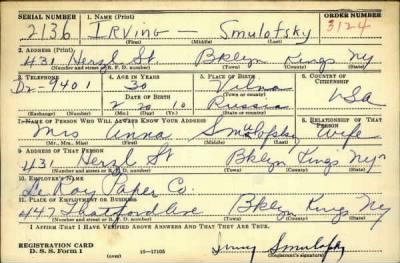 SERIAL NUMBER 1. NAME (Print) ORDER NUMBER
2136 IRVING — Smulofsky 3124
(First) (Middle) (Last)
2. ADDRESS (Print)
431 Herzl St. Bklyn Kings NY
(Number and street or R. F. D. number) (Town) (County) (State)
3. TELEPHONE 4. AGE IN YEARS 5. PLACE OF BIRTH 6. COUNTRY OF CITIZENSHIP
Di-9401 30 Vilna
DATE OF BIRTH (Town or county) USA
2 20 10 Russia
(Exchange) (Number) (Mo.) (Day) (Yr.) (State or country)
7. NAME OF PERSON WHO WILL ALWAYS KNOW YOUR ADDRESS 8. RELATIONSHIP OF THAT PERSON
Mrs Anna Smulofsky Wife
(Mr., Mrs., Miss) (First) (Middle) (Last)
9. ADDRESS OF THAT PERSON
431 Herzl St Bklyn Kings Ny
(Number and street or R. F. D. number) (Town) (County) (State)
10. EMPLOYER'S NAME
Le Roy Paper Co.
11. PLACE OF EMPLOYMENT OR BUSINESS
447 Thatford Ave Bklyn Kings Ny
(Number and street or R. F. D. number) (Town) (County) (State)
I AFFIRM THAT I HAVE VERIFIED ABOVE ANSWERS AND THAT THEY ARE TRUE.
REGISTRATION CARD
D. S. S. Form 1 (over) 16—17105 Irving Smulofsky
(Registrant's signature)